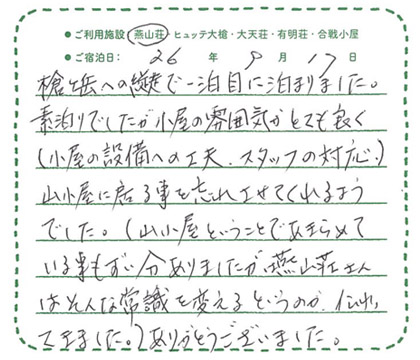 ●ご利用施設 燕山荘・ヒュッテ大槍・大天荘・有明荘・合戦小屋
●ご宿泊日: 26 年 9 月 17 日
槍ヶ岳への縦走で一泊目に泊まりました。
素泊りでしたが小屋の雰囲気がとても良く
(小屋の設備への工夫、スタッフの対応、)
山小屋に居る事を忘れさせてくれるよう
でした。(山小屋ということであきらめて
いる事もずい分ありましたが、燕山荘さん
はそんな常識を変えるというのが、伝わっ
てきました。)ありがとうございました。